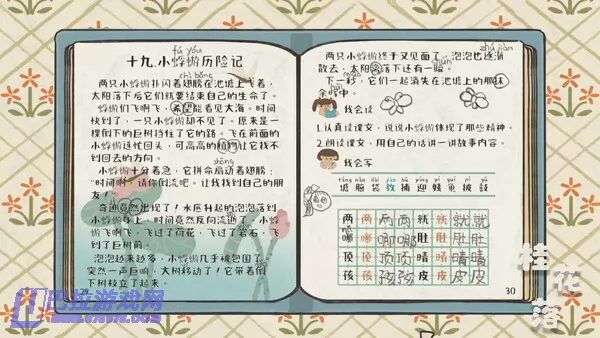 fú yóu
十九.小蜉蝣历险记
chì bǎng
两只小蜉蝣扑闪着翅膀在池塘上飞着,
太阳落下后它们就要结束自己的生命了。
蜉蝣们飞啊飞,希望能看见大海。时间
快到了,一只小蜉蝣却不见了。原来是一
棵倒下的巨树挡住了它的路。飞在前面的
小蜉蝣连忙回头,可高高的植物让它找不
到回去的方向。
小蜉蝣十分着急,它拼命扇动着翅膀:
"时间啊!请你倒流吧。让我找到自己的朋
友!"
奇迹竟然出现了!水底升起的泡泡落到
小蜉蝣身上,时间竟然反向流逝。小蜉
蝣飞啊飞,飞过了荷花,飞过了岩石,飞
到了巨树前。
泡泡越来越多,小蜉蝣几乎被包围了。
突然一声巨响,大树移动了!它带着倒
下树枝立了起来。
29
两只小蜉蝣终于又见面了,泡泡也逐渐
散去,太阳落下还有一瞬。
下一秒,它们一起消失在池塘上的那抹
余晖中。
我会说
1.认真读课文,说说小蜉蝣体现了那些精神。
2.朗读课文,用自己的话讲一讲故事内容。
我会写
塘 脑 袋 教 捕 迎 姥 龟 披 鼓
两 两 两 两 就 就 就 就
哪 哪 哪 哪 肚 肚 肚 肚
顶 顶 顶 顶 晴 晴 晴 晴
孩 孩 孩 孩 皮 皮 皮 皮
30
桂花落
巴拉游戏网